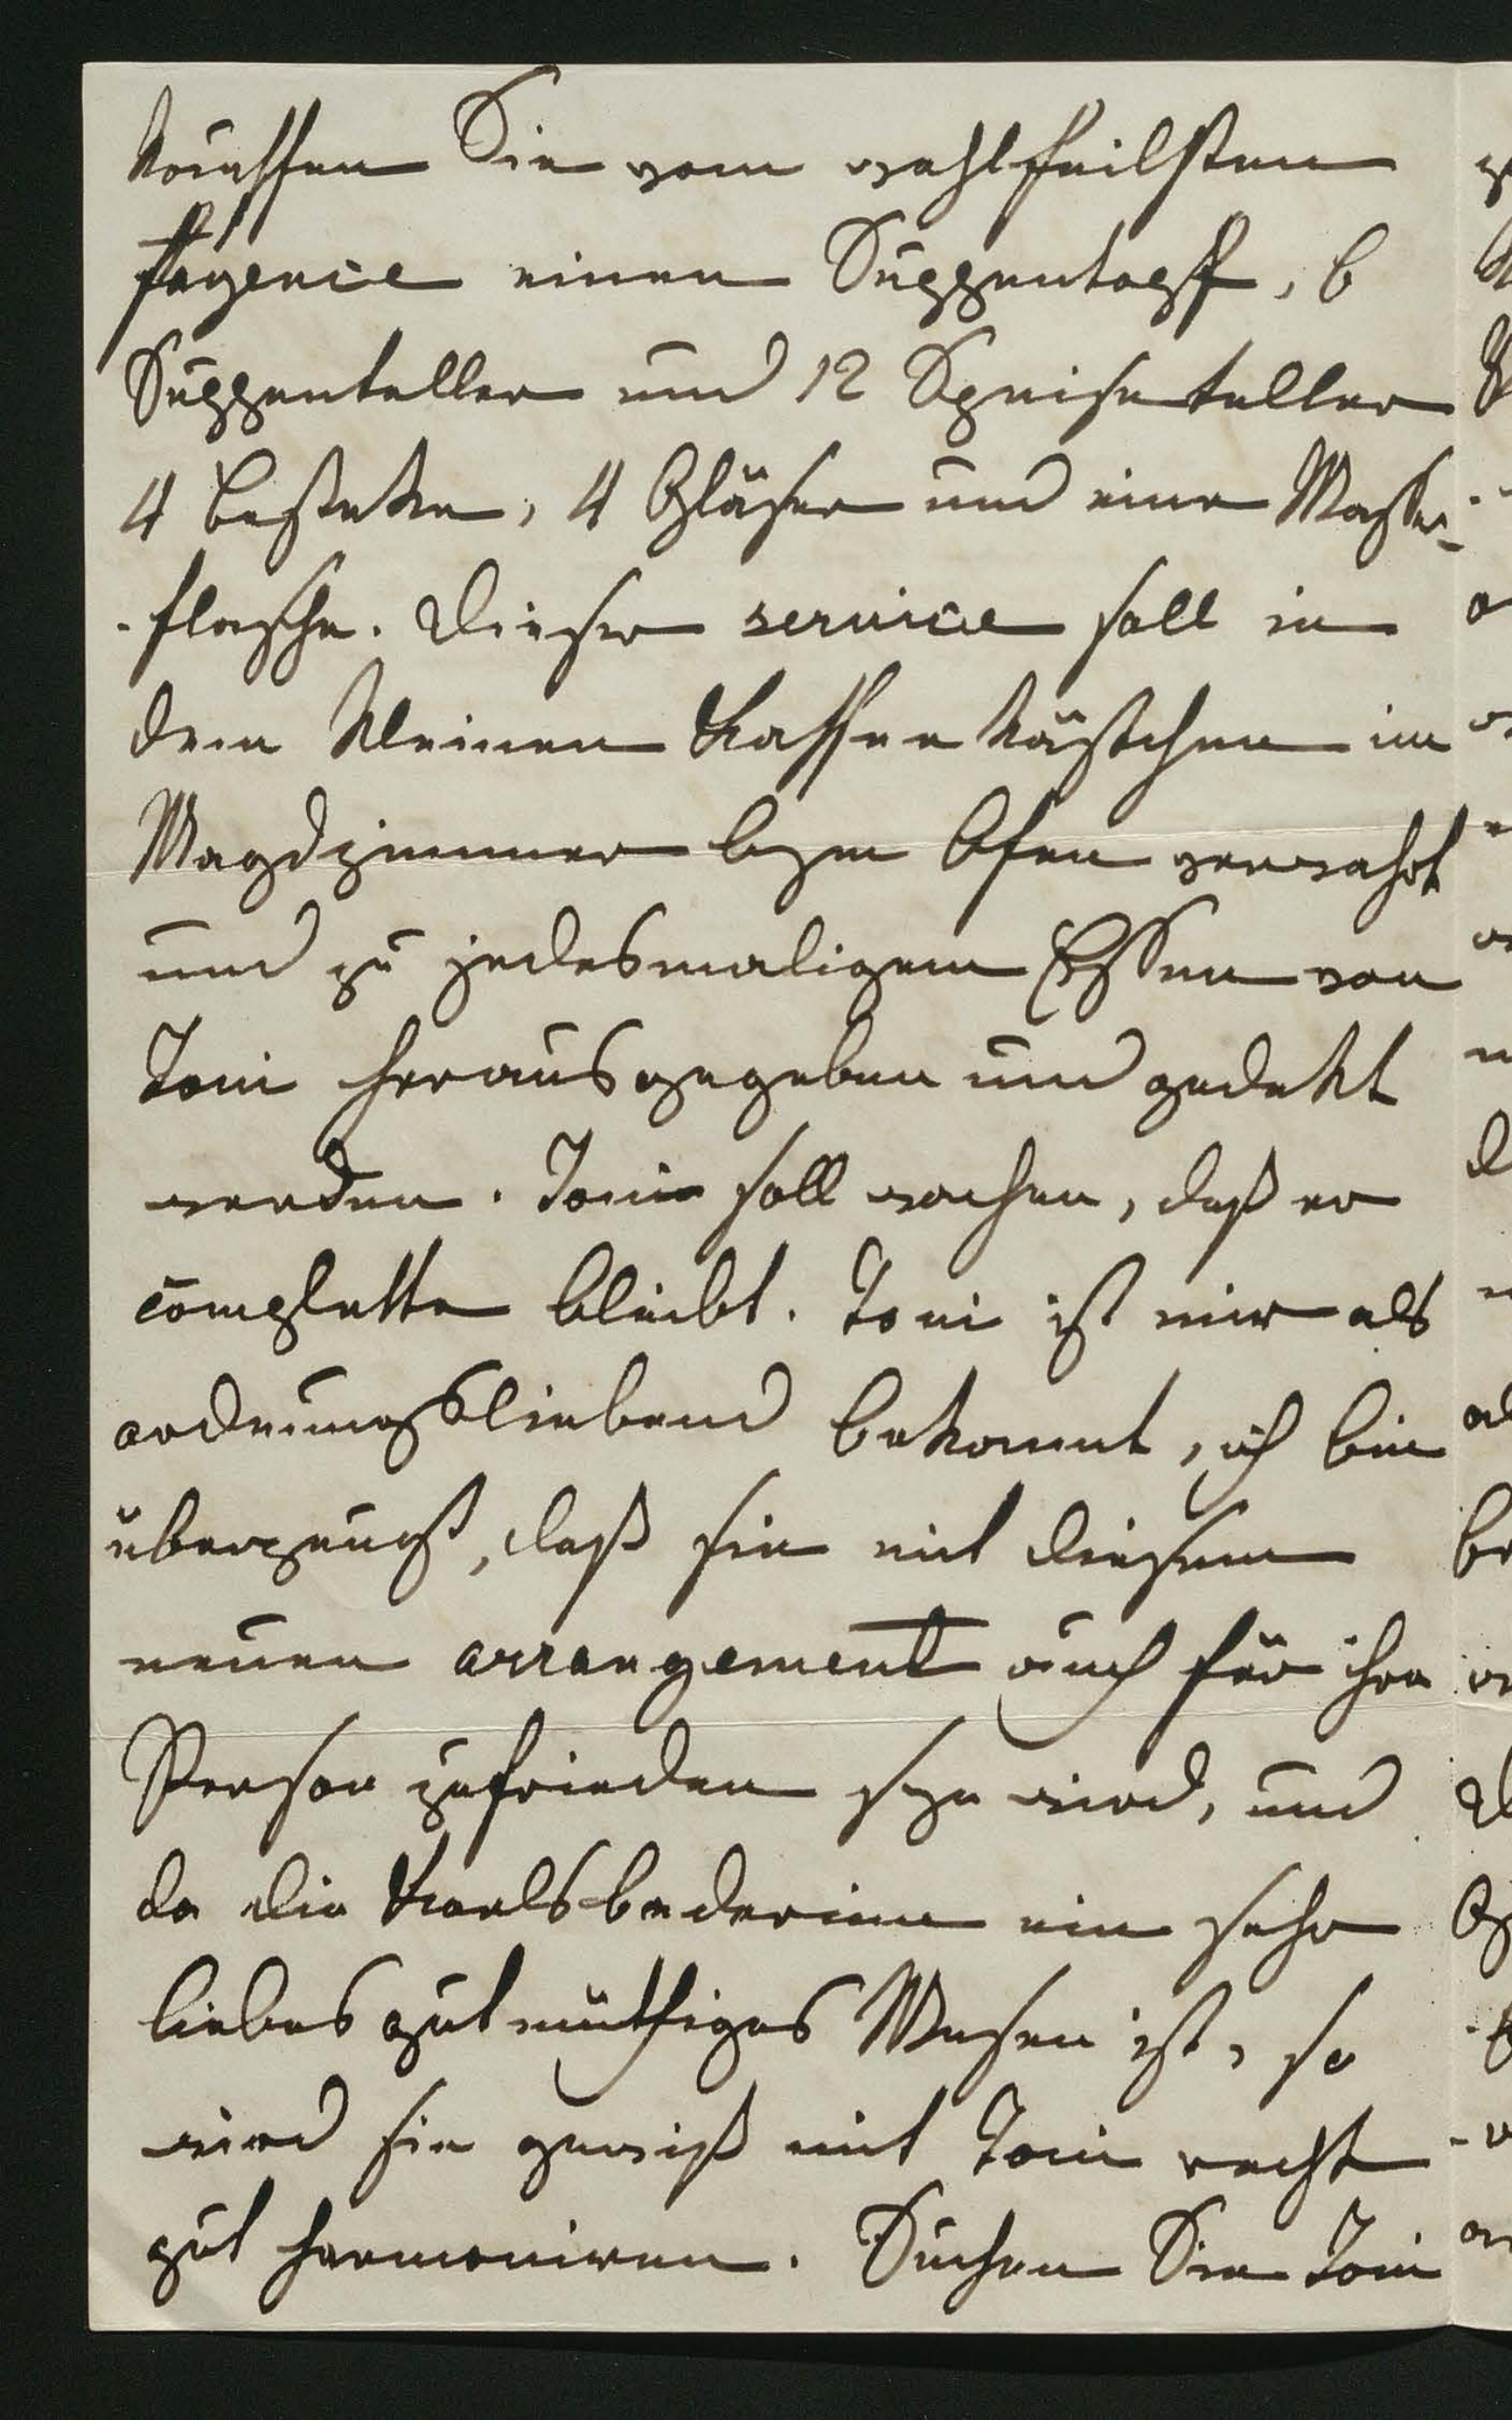 kauffen Sie vom wohlfeilsten
fayence einen Suppentopff, 6
Suppenteller und 12 Speiseteller
4 besteke, 4 Gläser und eine Wasser-
-flasche. Dieser service soll in
dem kleinen Kaffee kästchen im
Magdzimmer beym Ofen verwahrt
und zu jedesmaligem Essen von
Toni herausgegeben und gedekt
werden. Toni soll wachen, daß er
complette bleibt. Toni ist mir als
ordnungsliebend bekannt, ich bin
überzeugt, daß sie mit diesem
neuen arrangement auch für ihre
Person zufrieden seyn wird, und
da die Karlsbaderinn ein sehr
liebes gutmüthiges Wesen ist, so
wird sie gewiß mit Toni recht
gut harmoniren. Suchen Sie Toni